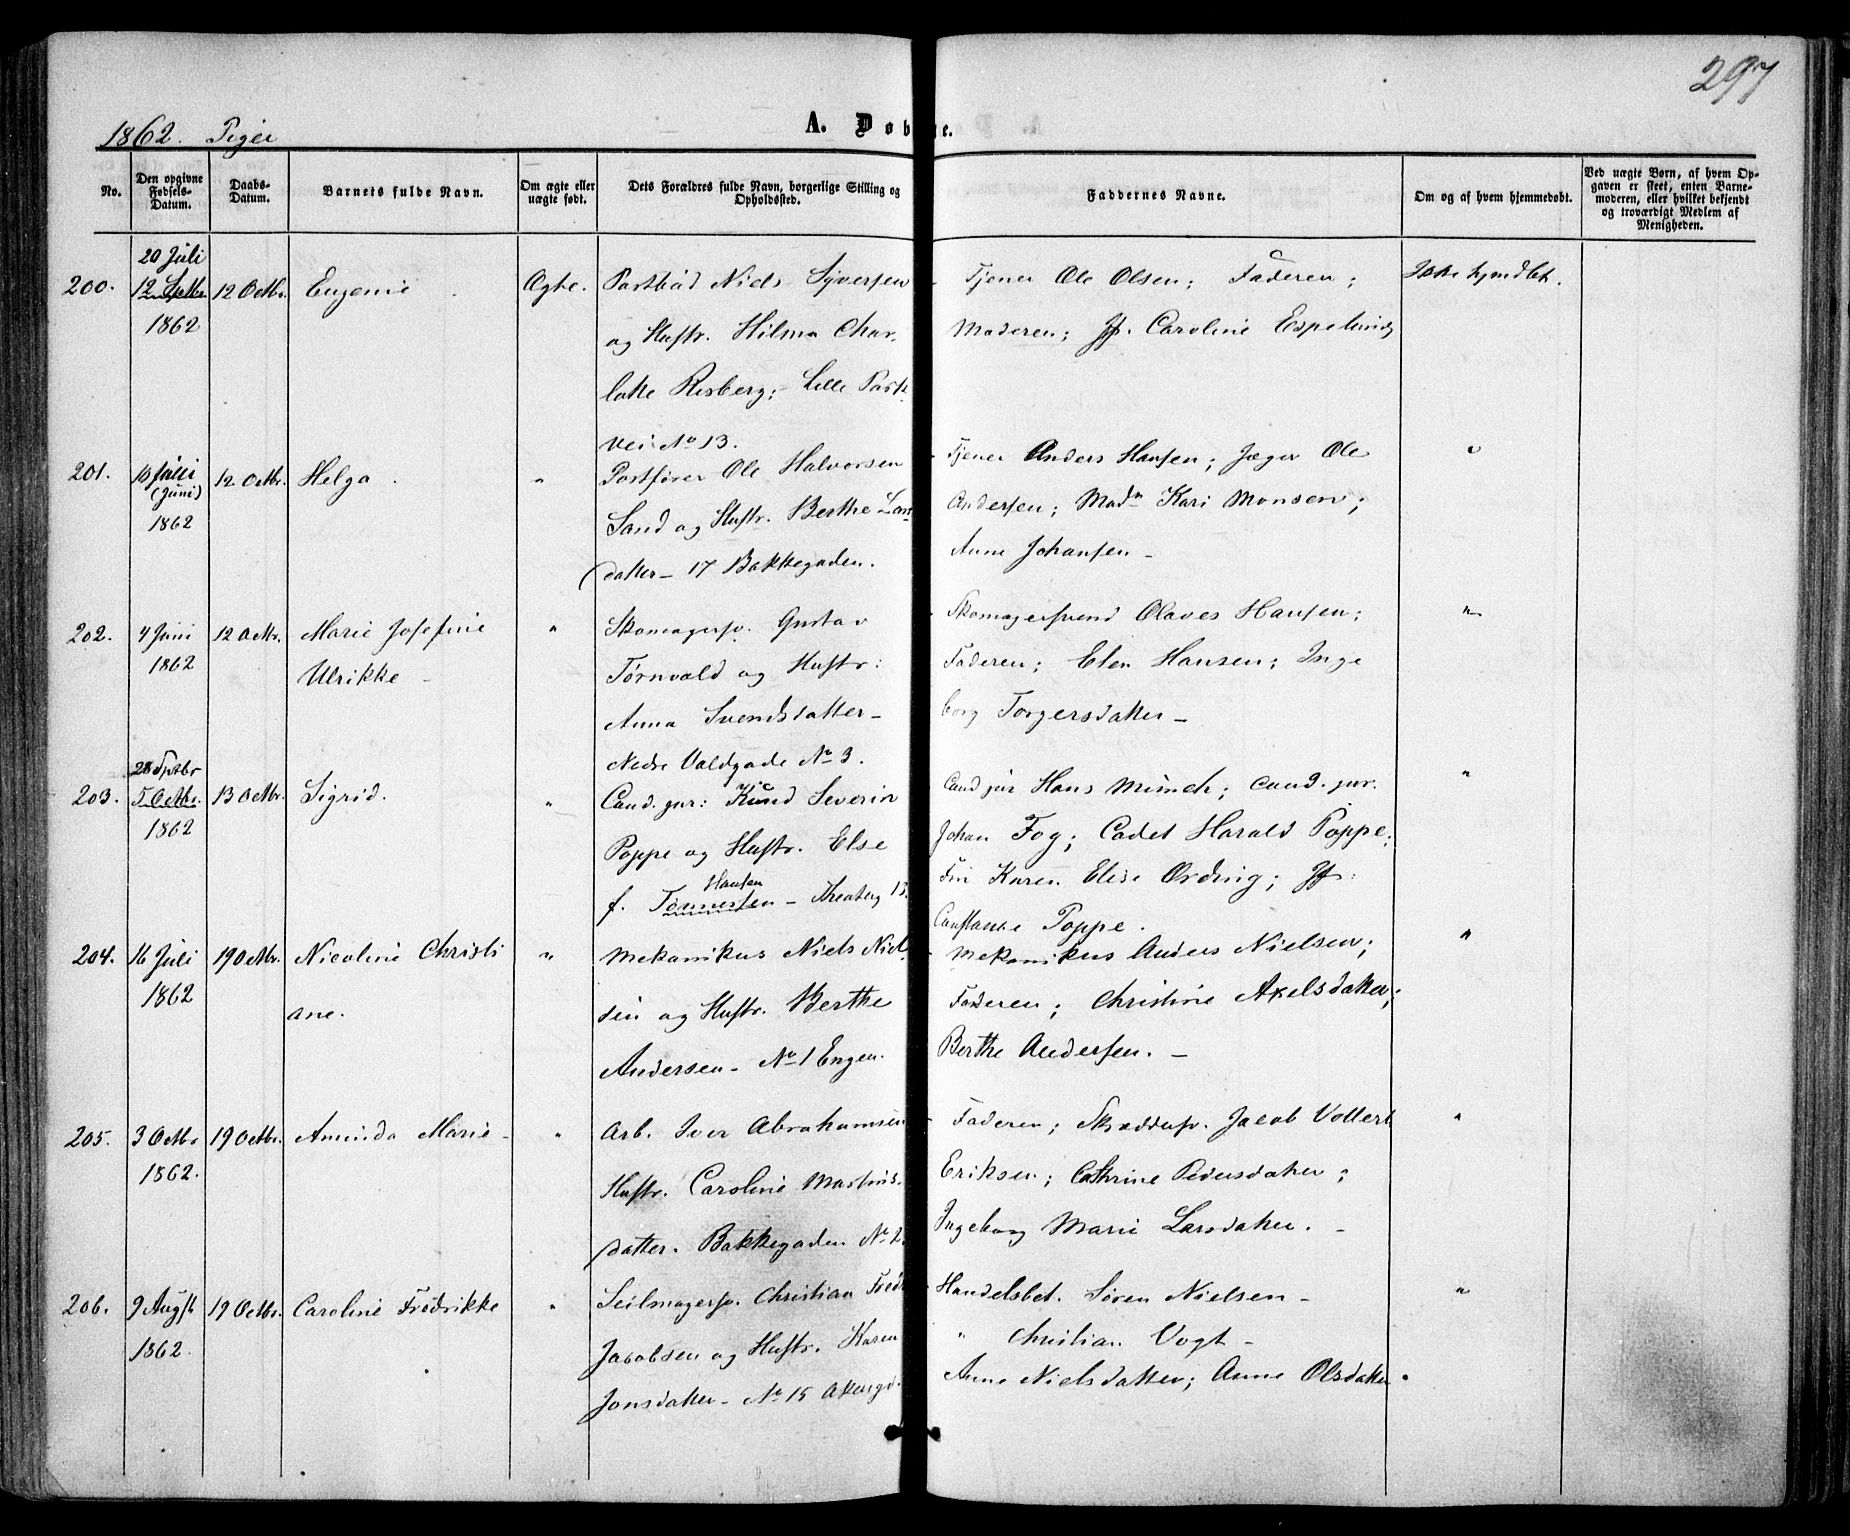 297
1862. Piger
A. Døbte.
No.
Den opgivne Fødsels-Datum.
Daabs-Datum.
Barnets fulde Navn.
Om ægte eller uægte født.
Dets Forældres fulde Navn, borgerlige Stilling og Opholdssted.
Faddernes Navne.
Om og af hvem hjemmedøbt.
Ved uægte Børn, af hvem Opgaven er skeet, enten Barnemoderen, eller hvilket bekjendt og troværdigt Medlem af Menigheden.
20 Juli
200. 12 Septbr 12 Octbr. Eugenie Ægte. Postbud Niels Syversen
1862 og Hustr. Hilma Char-
lotte Risberg; Lille Park
vei No 13.
Tjener Ole Olsen; Faderen;
Moderen; Jfr. Caroline Espelund
Ikke hjmdbt.
201. 10 Juli 12 Octbr. Helga " Postfører Ole Halvorsen
(Juni) Sand og Hustr. Berthe Lars
1862 datter – 17 Bakkegaden.
Tjener Anders Hansen; Jæger Ole
Andersen; Madm Kari Monsen;
Anne Johansen –
"
202. 4 Juni 12 Octbr. Marie Josefine " Skomagersv. Gustav
1862 Ulrikke – Törnvald og Hustr:
Anna Svendsdatter –
Nedre Voldgade No 3.
Skomagersvend Olaves Hansen;
Faderen; Elen Hansen; Inge
borg Torgersdatter –
"
28 Septbr
203. 5 Octbr. 13 Octbr. Sigrid. " Cand. jur: Knud Severin
1862 Poppe og Hustr. Else
Hansen
f. Tönnesen – Theaterg 13.
Cand jur Hans Münch; cand. jur.
Johan Fog; Cadet Harald Poppe;
Fru Karen Elise Ording; Jfr:
Constance Poppe.
"
204. 16 Juli 19 Octbr. Nicoline Christi " Mekanikus Niels Niel
1862 ane. sen og Hustr. Berthe
Andersen – No 1 Engen.
Mekanikus Anders Nielsen;
Faderen; Christine Axelsdatter;
Berthe Andersen. –
"
205. 3 Octbr 19 Octbr. Aminda Marie – " Arb. Iver Abrahamsen
1862. Hustr. Caroline Martins.
datter. Bakkegaden No 2.
Faderen; Skræddersv. Jacob Vollert
Eriksen; Cathrine Pedersdatter;
Ingeborg Marie Larsdatter. –
"
206. 9 Augst 19 Octbr. Caroline Fredrikke " Seilmagersv. Christian Fredr
1862. Jacobsen og Hustr. Karen
Jonsdatter – No 15 Akersgd.
Handelsbet. Sören Nielsen –
" Christian Vogt –
Anne Nielsdatter; Anne Olsdatter.
"